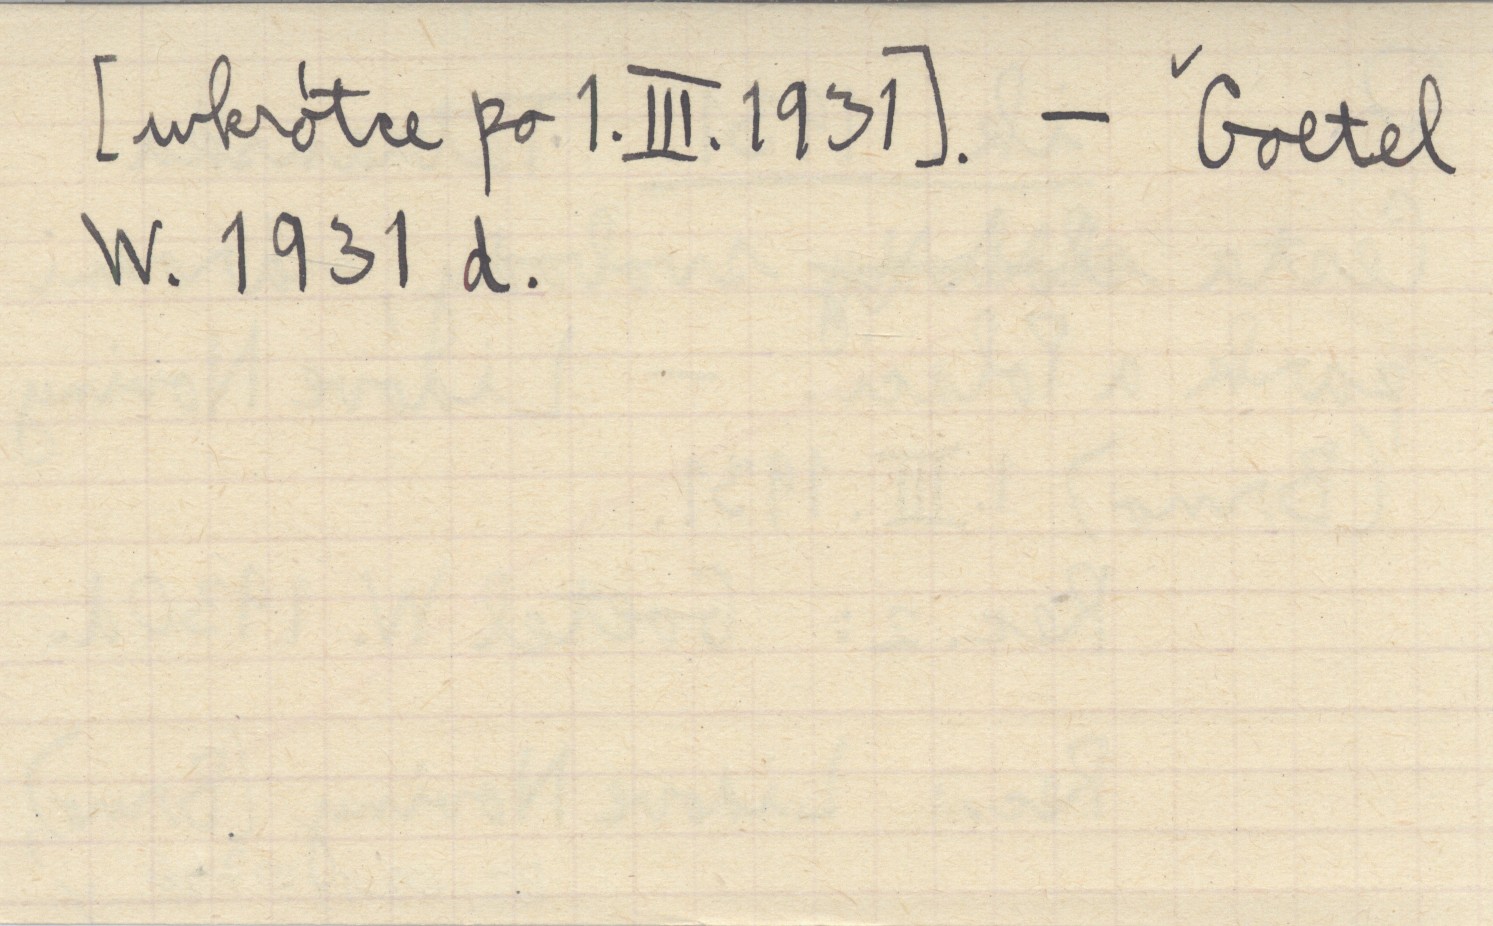 [wkrótce po 1.III.1931]. — ˇGoetel
W. 1931 d.